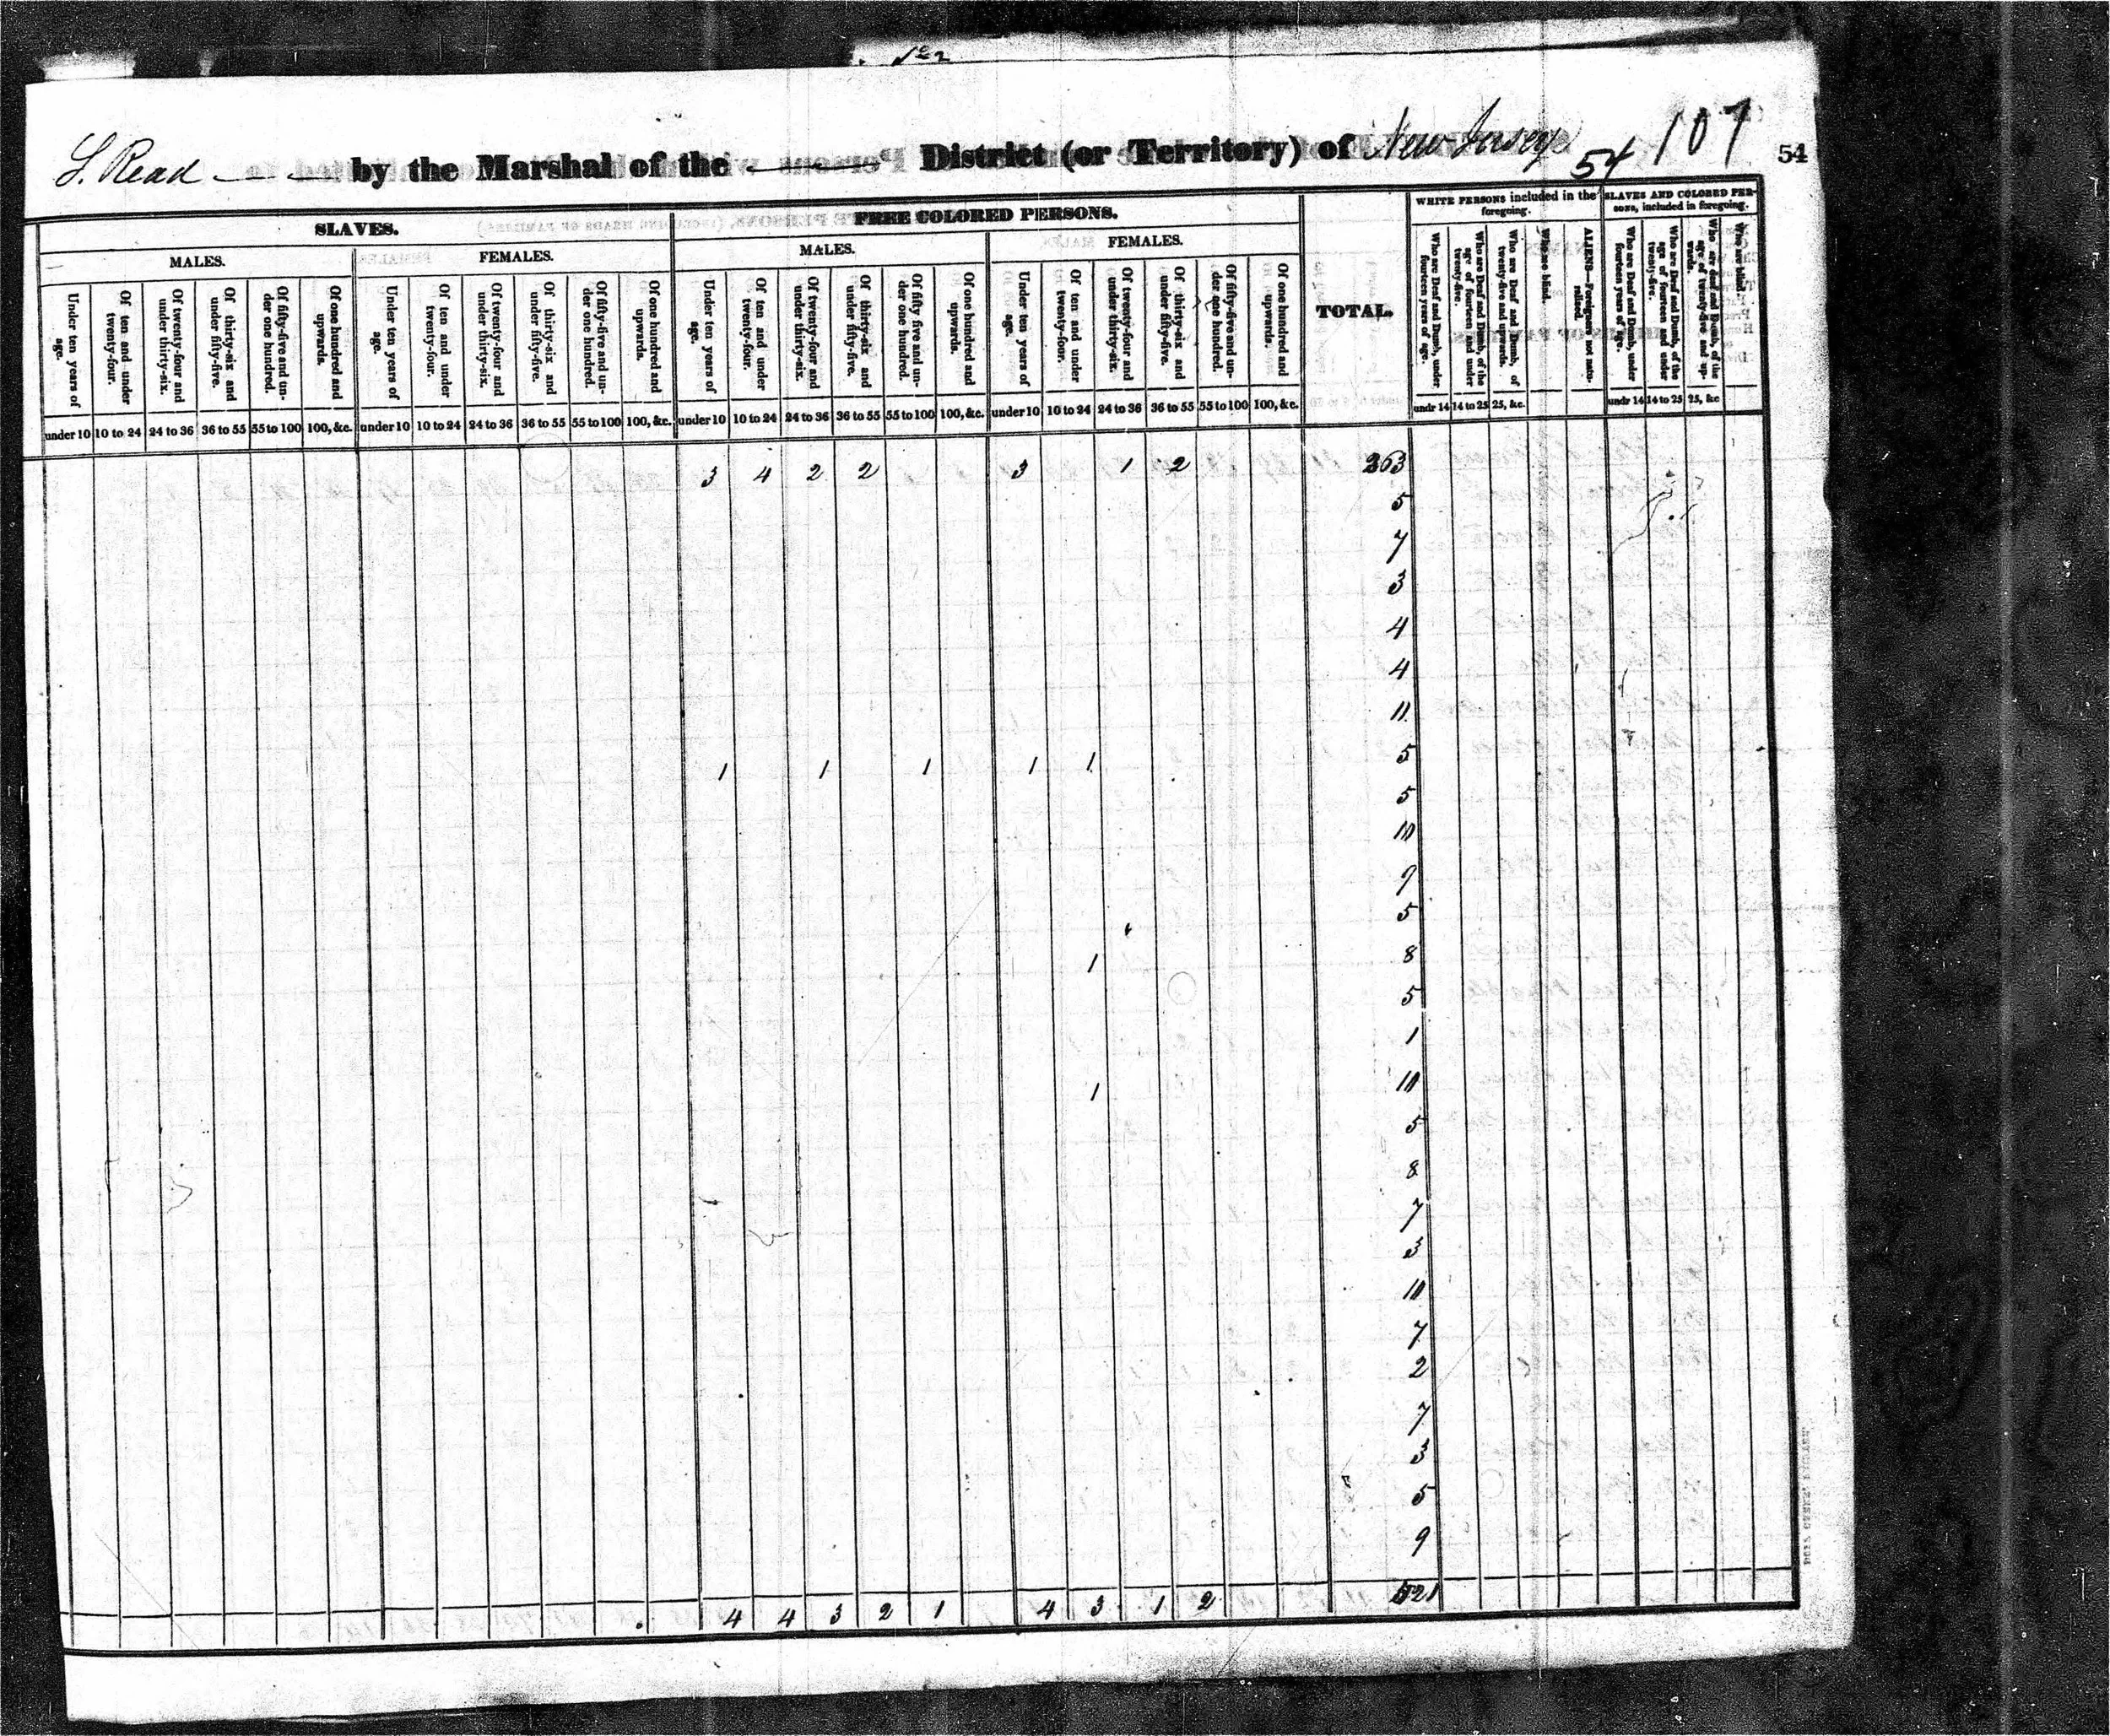 L. Read — — by the Marshal of the — District (or Territory) of New Jersey 54 107 54
SLAVES.
FREE COLORED PERSONS.
TOTAL.
WHITE PERSONS included in the foregoing.
SLAVES AND COLORED PERSONS, included in foregoing.
MALES.
FEMALES.
MALES.
FEMALES.
Under ten years of age.
Of ten and under twenty-four.
Of twenty-four and under thirty-six.
Of thirty-six and under fifty-five.
Of fifty-five and under one hundred.
Of one hundred and upwards.
Under ten years of age.
Of ten and under twenty-four.
Of twenty-four and under thirty-six.
Of thirty-six and under fifty-five.
Of fifty-five and under one hundred.
Of one hundred and upwards.
Under ten years of age.
Of ten and under twenty-four.
Of twenty-four and under thirty-six.
Of thirty-six and under fifty-five.
Of fifty five and under one hundred.
Of one hundred and upwards.
Under ten years of age.
Of ten and under twenty-four.
Of twenty-four and under thirty-six.
Of thirty-six and under fifty-five.
Of fifty-five and under one hundred.
Of one hundred and upwards.
Who are Deaf and Dumb, under fourteen years of age.
Who are Deaf and Dumb, of the age of fourteen and under twenty-five.
Who are Deaf and Dumb, of twenty-five and upwards.
Who are blind.
ALIENS—Foreigners not naturalized.
Who are Deaf and Dumb, under fourteen years of age.
Who are Deaf and Dumb, of the age of fourteen and under twenty-five.
Who are deaf and Dumb, of the age of twenty-five and upwards.
Who are blind.
under 10 10 to 24 24 to 36 36 to 55 55 to 100 100, &c. under 10 10 to 24 24 to 36 36 to 55 55 to 100 100, &c. under 10 10 to 24 24 to 36 36 to 55 55 to 100 100, &c. under 10 10 to 24 24 to 36 36 to 55 55 to 100 100, &c. undr 14 14 to 25 25, &c. undr 14 14 to 25 25, &c
3 4 2 2 3 1 2 263
5
7
3
4
4
11
1 1 1 1 1 5
5
10
9
5
1 8
5
1
1 10
5
8
7
3
10
7
2
7
3
5
9
4 4 3 2 1 4 3 1 2